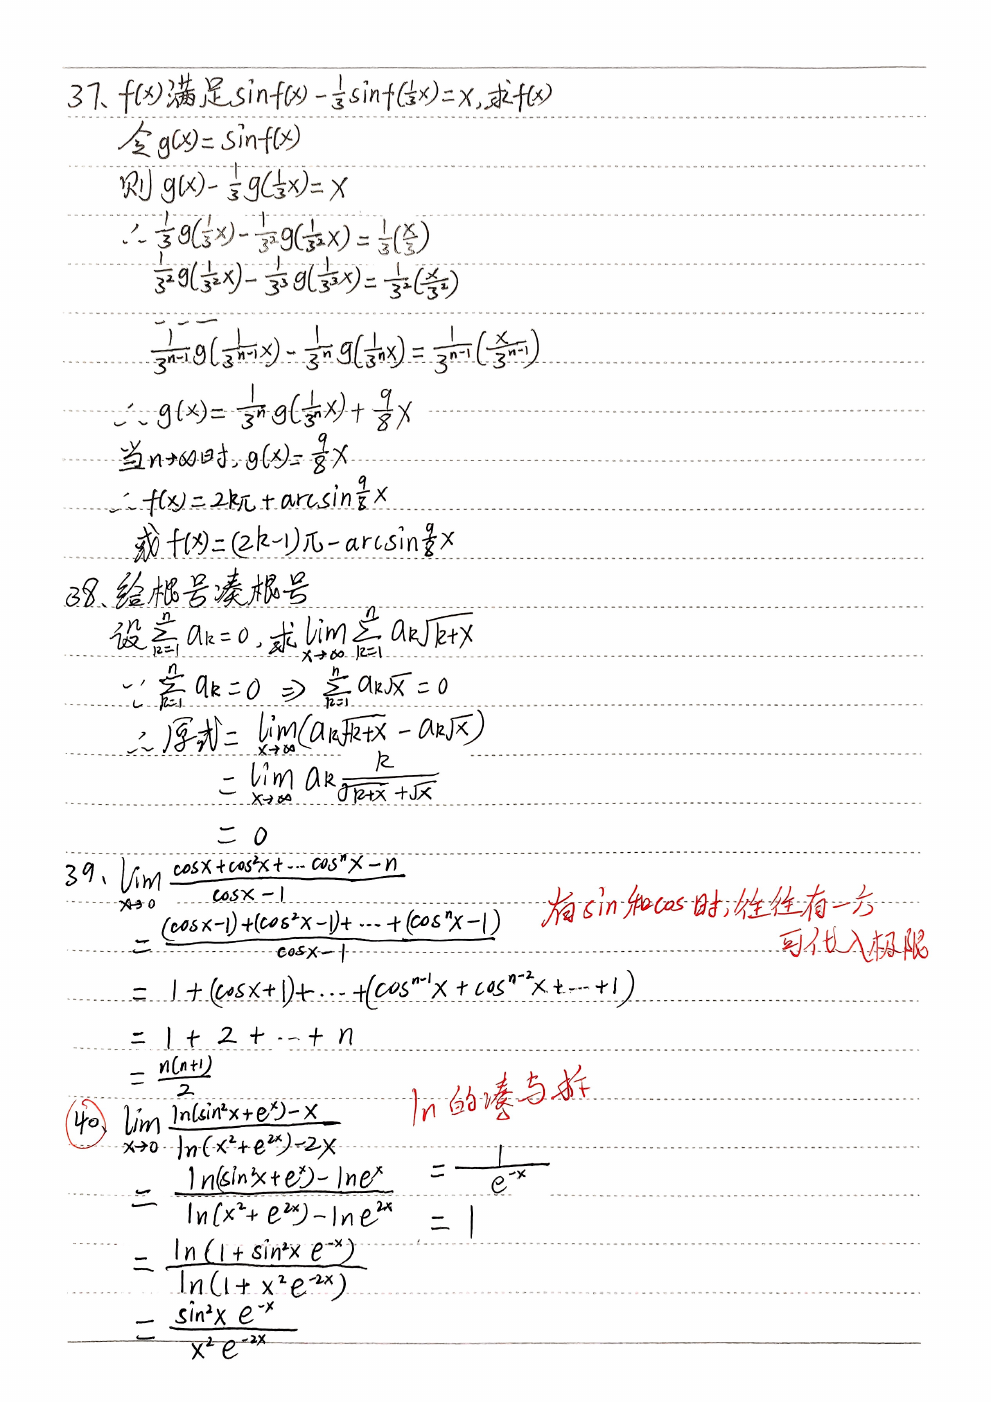 37、f(x)满足sinf(x)-⅓sinf(⅓x)=x,求f(x)
令g(x)=sinf(x)
则g(x)-1/3 g(1/3 x)=x
∴ 1/3 g(1/3 x)-1/3² g(1/3² x)=1/3(x/3)
1/3² g(1/3² x)-1/3³ g(1/3³ x)=1/3²(x/3²)
---
1/3ⁿ⁻¹ g(1/3ⁿ⁻¹ x)-1/3ⁿ g(1/3ⁿ x)=1/3ⁿ⁻¹(x/3ⁿ⁻¹)
∴ g(x)=1/3ⁿ g(1/3ⁿ x)+9/8 x
当n→∞时,g(x)=9/8 x
∴ f(x)=2kπ+arcsin 9/8 x
或 f(x)=(2k-1)π-arcsin 9/8 x
38、给根号凑根号
设 n∑k=1 ak=0,求 lim x→∞ n∑k=1 ak√k+x
∵ n∑k=1 ak=0 ⇒ n∑k=1 ak√x=0
∴ 原式= lim x→∞ (ak√k+x - ak√x)
= lim x→∞ ak k/(√k+x+√x)
= 0
39、lim x→0 (cosx+cos²x+…cosⁿx-n)/(cosx-1)
= ((cosx-1)+(cos²x-1)+…+(cosⁿx-1))/(cosx-1)
有sin和cos时,往往有一六
可代入极限
= 1+(cosx+1)+…+(cosⁿ⁻¹x+cosⁿ⁻²x+…+1)
= 1+2+…+n
= n(n+1)/2
40、lim x→0 (ln(sin²x+eˣ)-x)/(ln(x²+e²ˣ)-2x)
ln的凑与拆
= (ln(sin²x+eˣ)-lneˣ)/(ln(x²+e²ˣ)-lne²ˣ)
= ln(1+sin²x e⁻ˣ)/ln(1+x²e⁻²ˣ)
= sin²x e⁻ˣ/x²e⁻²ˣ
= 1/e⁻ˣ
= 1